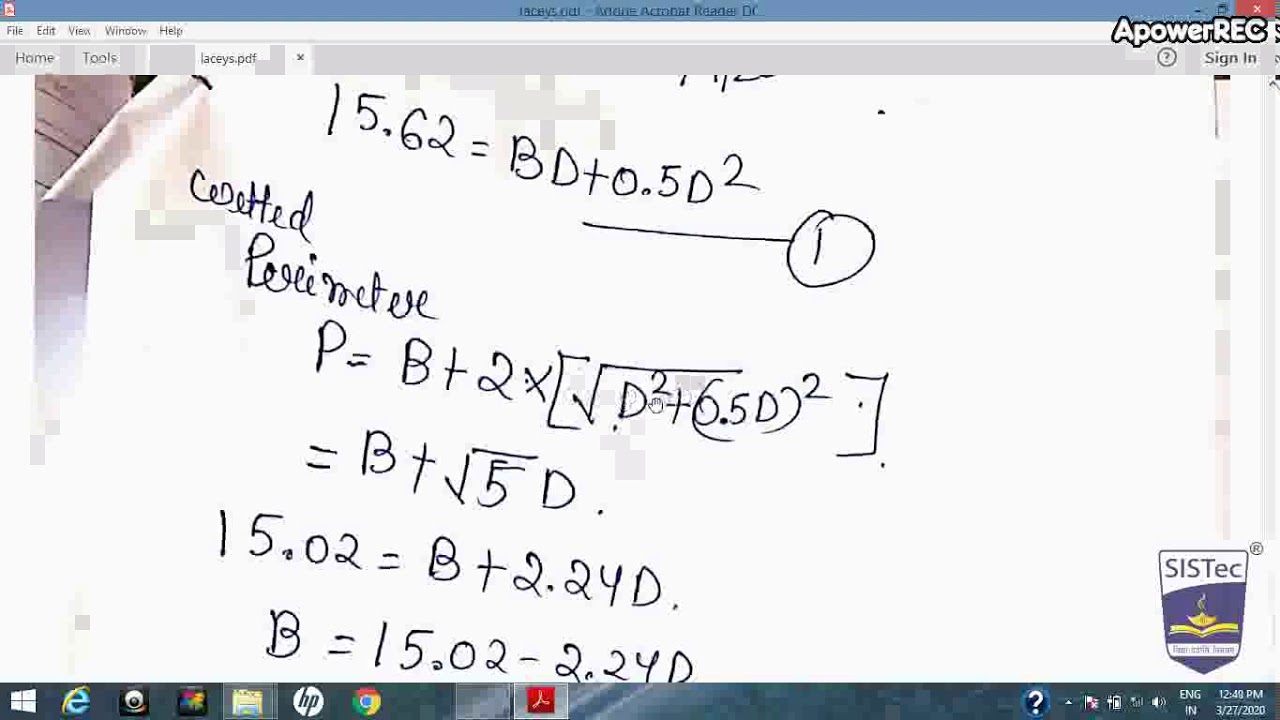 laceys.pdf - Adobe Acrobat Reader DC
ApowerREC
File Edit View Window Help
Home Tools laceys.pdf × ? Sign In
15.62 = BD+0.5D²
Wetted
Perimeter
1
P = B+2×[√D²+(0.5D)²]
= B+√5 D.
15.02 = B+2.24D.
B = 15.02-2.24D
SISTec
®
ENG 12:40 PM
IN 3/27/2020